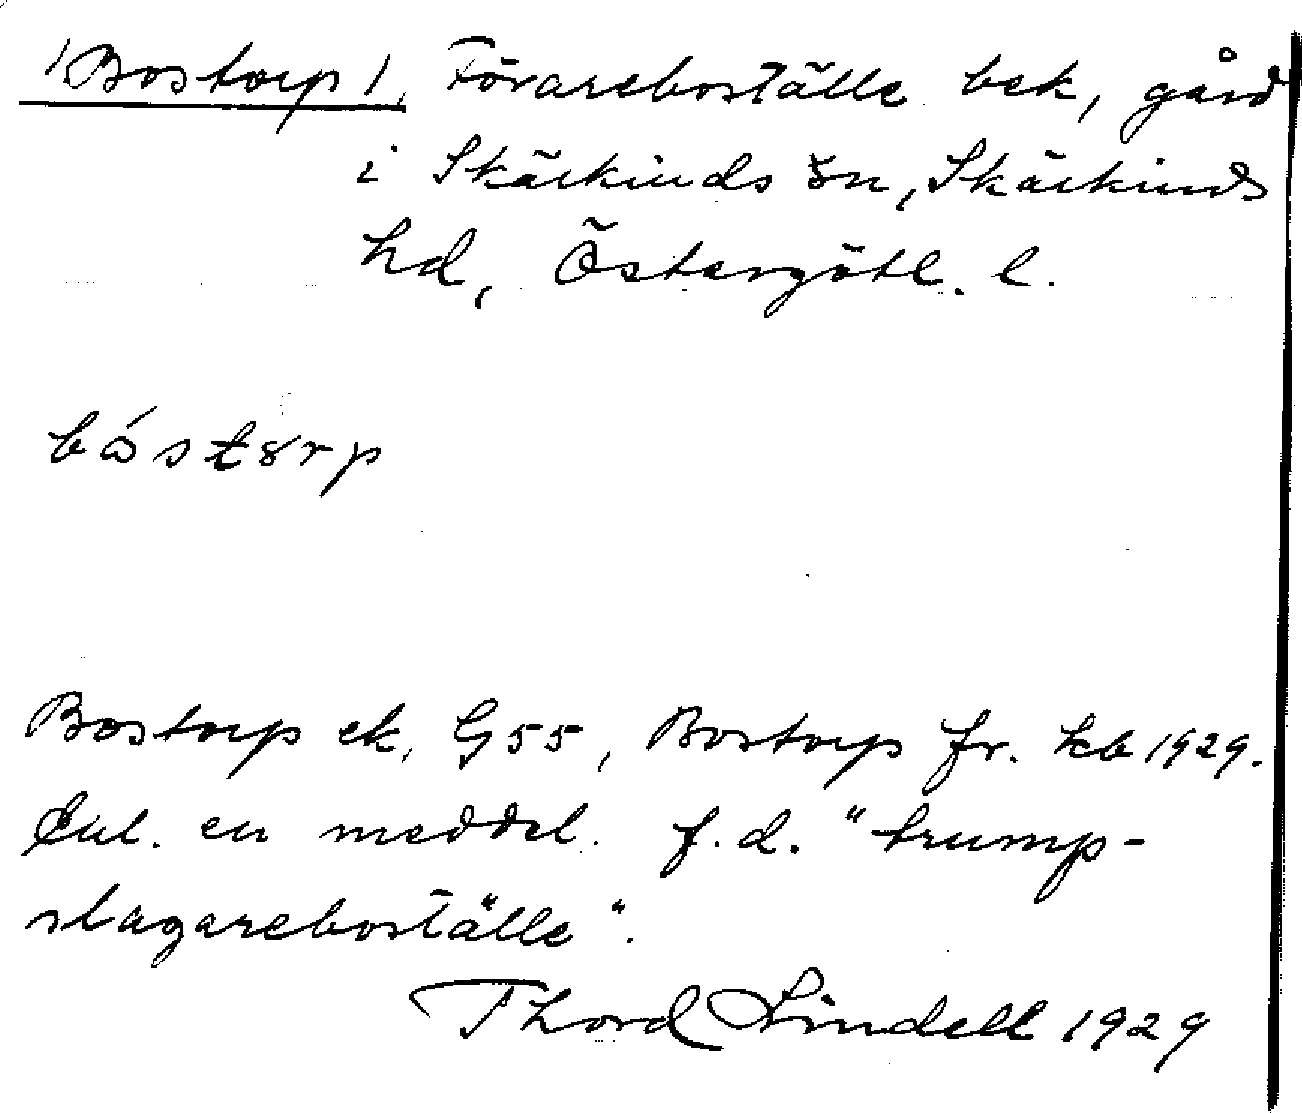 /Bostorp/, Förareboställe bek, gård
i Skärkinds sn, Skärkinds
hd, Östergötl. l.
bóstorp
Bostorp ek. G55, Bostorp fr. kb 1929.
Enl. en meddel. f.d. "trump-
slagareboställe".
Thord Lindell 1929